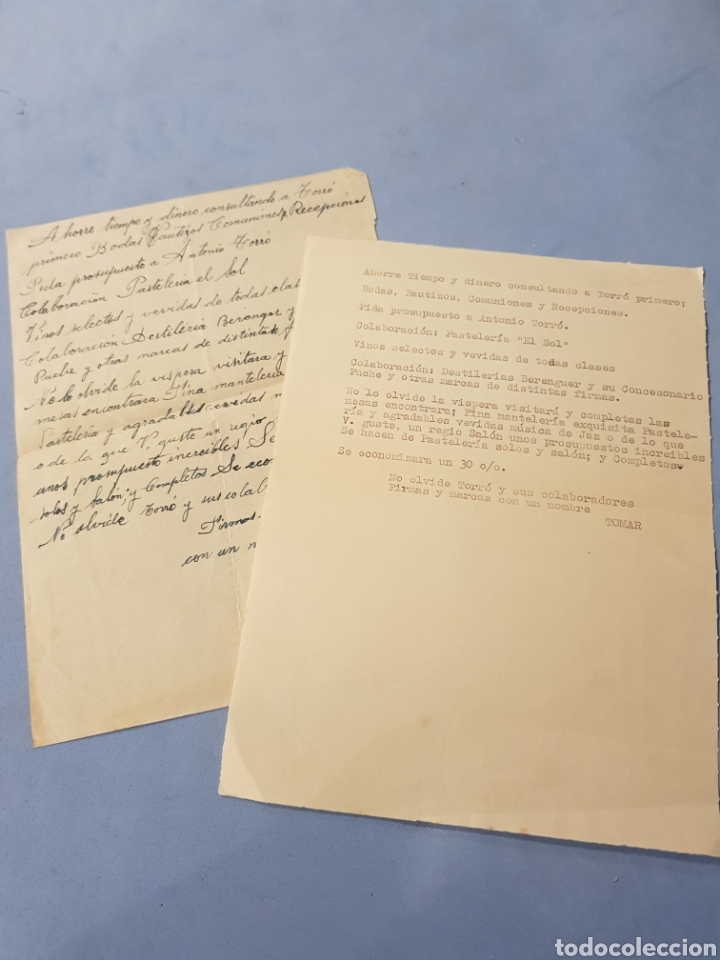 Ahorre tiempo y dinero consultando a Torró
primero Bodas Bautizos Comuniones y Recepciones
Pida prosupuesto a Antonio Torró
Colaboración Pasteleria el Sol
Vinos selectos y vevidas de todas clas
Colaboración Destileria Berenguer y
Puche y otras marcas de distintas f
No lo olvide la vispera visitara y
mesas encontrara Fina manteleria
Pasteleria y agradables vevidas m
o de la que V. guste un regio
unos prosupuesto increibles Se
solos y salón; y Completos Se econ
No olvide Torró y sus cola
Firmas
con un n
Ahorre Tiempo y dinero consultando a Torró primero;
Bodas, Bautizos, Comuniones y Recepciones.
Pida prosupuesto a Antonio Torró.
Colaboración: Pastelería "El Sol"
Vinos selectos y vevidas de todas clases
Colaboración: Destilerias Berenguer y su Concesonario
Puche y otras marcas de distintas firmas.
No lo olvide la vispera visitará y completas las
mesas encontrara; Fina mantelería exquisita Pastele-
ría y agradables vevidas música de Jaz o de lo que
V. guste, un regio Salón unos prosupuestos increibles
Se hacen de Pastelería solos y salón; y Completos.
Se economizara un 30 o/o.
No olvide Torró y sus colaboradores
Firmas y marcas con un nombre
TOMAR
todocoleccion